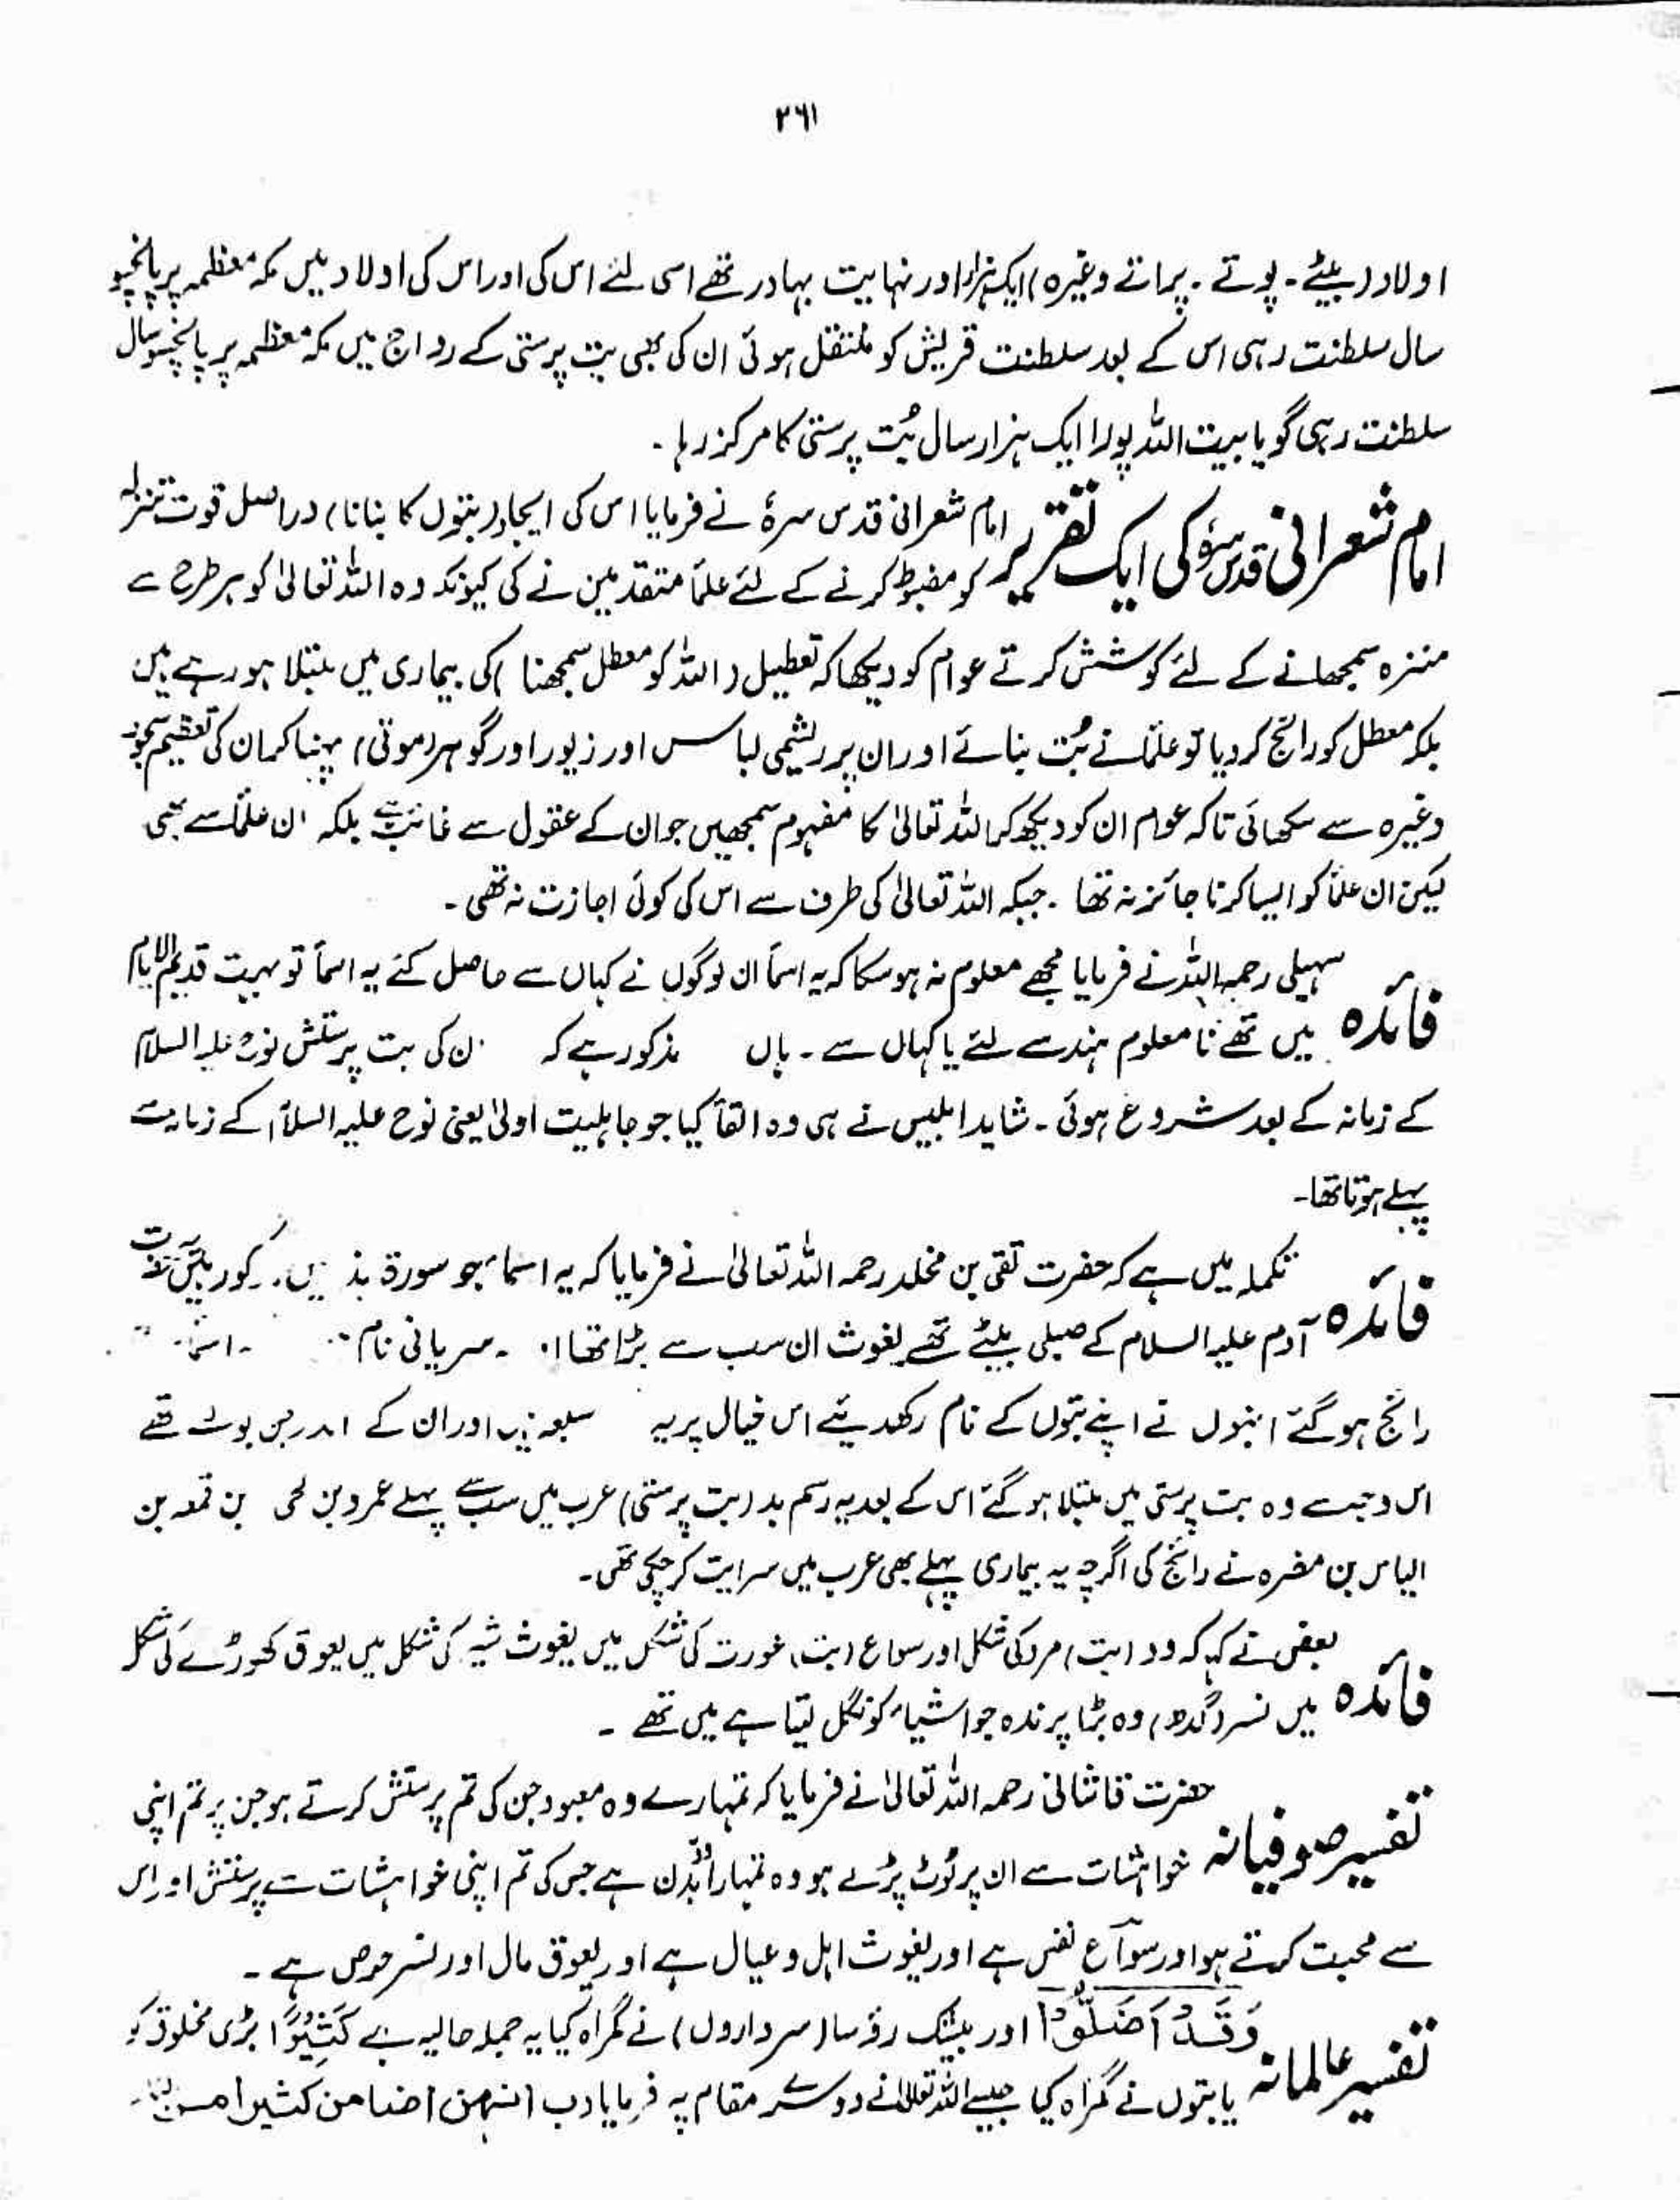 ۳۶۱
اولاد (بیٹے۔ پوتے۔ پرماتے وغیرہ) ایک ہزار اور نہایت بہادر تھے اسی لئے اس کی اور اس کی اولاد میں مکہ معظمہ پر پانچسو
سال سلطنت رہی اس کے بعد سلطنت قریش کو منتقل ہوئی ان کی بھی بت پرستی کے رواج میں مکہ معظمہ پر پانچسو سال
سلطنت رہی گویا بیت اللہ پورا ایک ہزار سال بُت پرستی کا مرکز رہا۔
امام شعرانی قدس سرہٗ کی ایک تقریر امام شعرانی قدس سرہٗ نے فرمایا اس کی ایجاد (بتوں کا بنانا) دراصل قوت تنزلہ
کو مضبوط کرنے کے لئے علمأ متقدمین نے کی کیونکہ وہ اللہ تعالیٰ کو ہر طرح سے
منزہ سمجھانے کے لئے کوشش کرتے عوام کو دیکھا کہ تعطیل (اللہ کو معطل سمجھنا) کی بیماری میں مبتلا ہو رہے ہیں
بلکہ معطل کو رائج کر دیا تو علمأ نے بُت بنائے اور ان پر ریشمی لباس اور زیور اور گوہر (موتی) پہنا کر ان کی تعظیم سجود
وغیرہ سے سکھائی تاکہ عوام ان کو دیکھ کر اللہ تعالیٰ کا مفہوم سمجھیں جو ان کے عقول سے غائب ہے بلکہ ان علمأ سے بھی
لیکن ان علمأ کو ایسا کرنا جائز نہ تھا۔ جبکہ اللہ تعالیٰ کی طرف سے اس کی کوئی اجازت نہ تھی۔
فائدہ سہیلی رحمہ اللہ نے فرمایا مجھے معلوم نہ ہو سکا کہ یہ اسمأ ان لوگوں نے کہاں سے حاصل کئے یہ اسمأ تو بہت قدیم الایام
میں تھے نا معلوم ہند سے لئے یا کہاں سے۔ ہاں مذکور ہے کہ ان کی بت پرستش نوح علیہ السلام
کے زمانہ کے بعد شروع ہوئی۔ شاید ابلیس نے ہی وہ القأ کیا جو جاہلیت اولیٰ یعنی نوح علیہ السلام کے زمانہ سے
پہلے ہوتا تھا۔
فائدہ تکملہ میں ہے کہ حضرت تقی بن مخلد رحمہ اللہ تعالیٰ نے فرمایا کہ یہ اسمأ جو سورۃ ہذ میں مذکور ہیں حضرت
آدم علیہ السلام کے صلبی بیٹے تھے یغوث ان سب سے بڑا تھا۔ سریانی نام اسمأ
رائج ہو گئے انہوں نے اپنے بتوں کے نام رکھ دیئے اس خیال پر یہ اور ان کے اندر جن بولتے تھے
اس وجہ سے وہ بت پرستی میں مبتلا ہو گئے اس کے بعد یہ رسم بد (بت پرستی) عرب میں سب سے پہلے عمرو بن لحی بن قمعہ بن
الیاس بن مضرہ نے رائج کی اگرچہ یہ بیماری پہلے بھی عرب میں سرایت کر چکی تھی۔
فائدہ بعض نے کہ کہ ود (بت) مرد کی شکل اور سواع (بت) عورت کی شکل میں یغوث شیر کی شکل میں یعوق گھوڑے کی شکل
میں نسر (گدھ) وہ بڑا پرندہ جو اشیأ کو نگل لیتا ہے میں تھے۔
تفسیر صوفیانہ حضرت قاشانی رحمہ اللہ تعالیٰ نے فرمایا کہ تمہارے وہ معبود جن کی تم پرستش کرتے ہو جن پر تم اپنی
خواہشات سے ان پر ٹوٹ پڑے ہو وہ تمہارا بدن ہے جس کی تم اپنی خواہشات سے پرستش اور اس
سے محبت کرتے ہو اور سواع نفس ہے اور یغوث اہل و عیال ہے اور یعوق مال اور نسر حرص ہے۔
تفسیر عالمانہ وَقَدْ اَضَلُّوْا اور بیشک رؤسا (سرداروں) نے گمراہ کیا یہ جملہ حالیہ ہے كَثِيْرًا بڑی مخلوق کو
یا بتوں نے گمراہ کیا جیسے اللہ تعالیٰ نے دوسرے مقام پہ فرمایا رب انہن اضا من کثیرا من